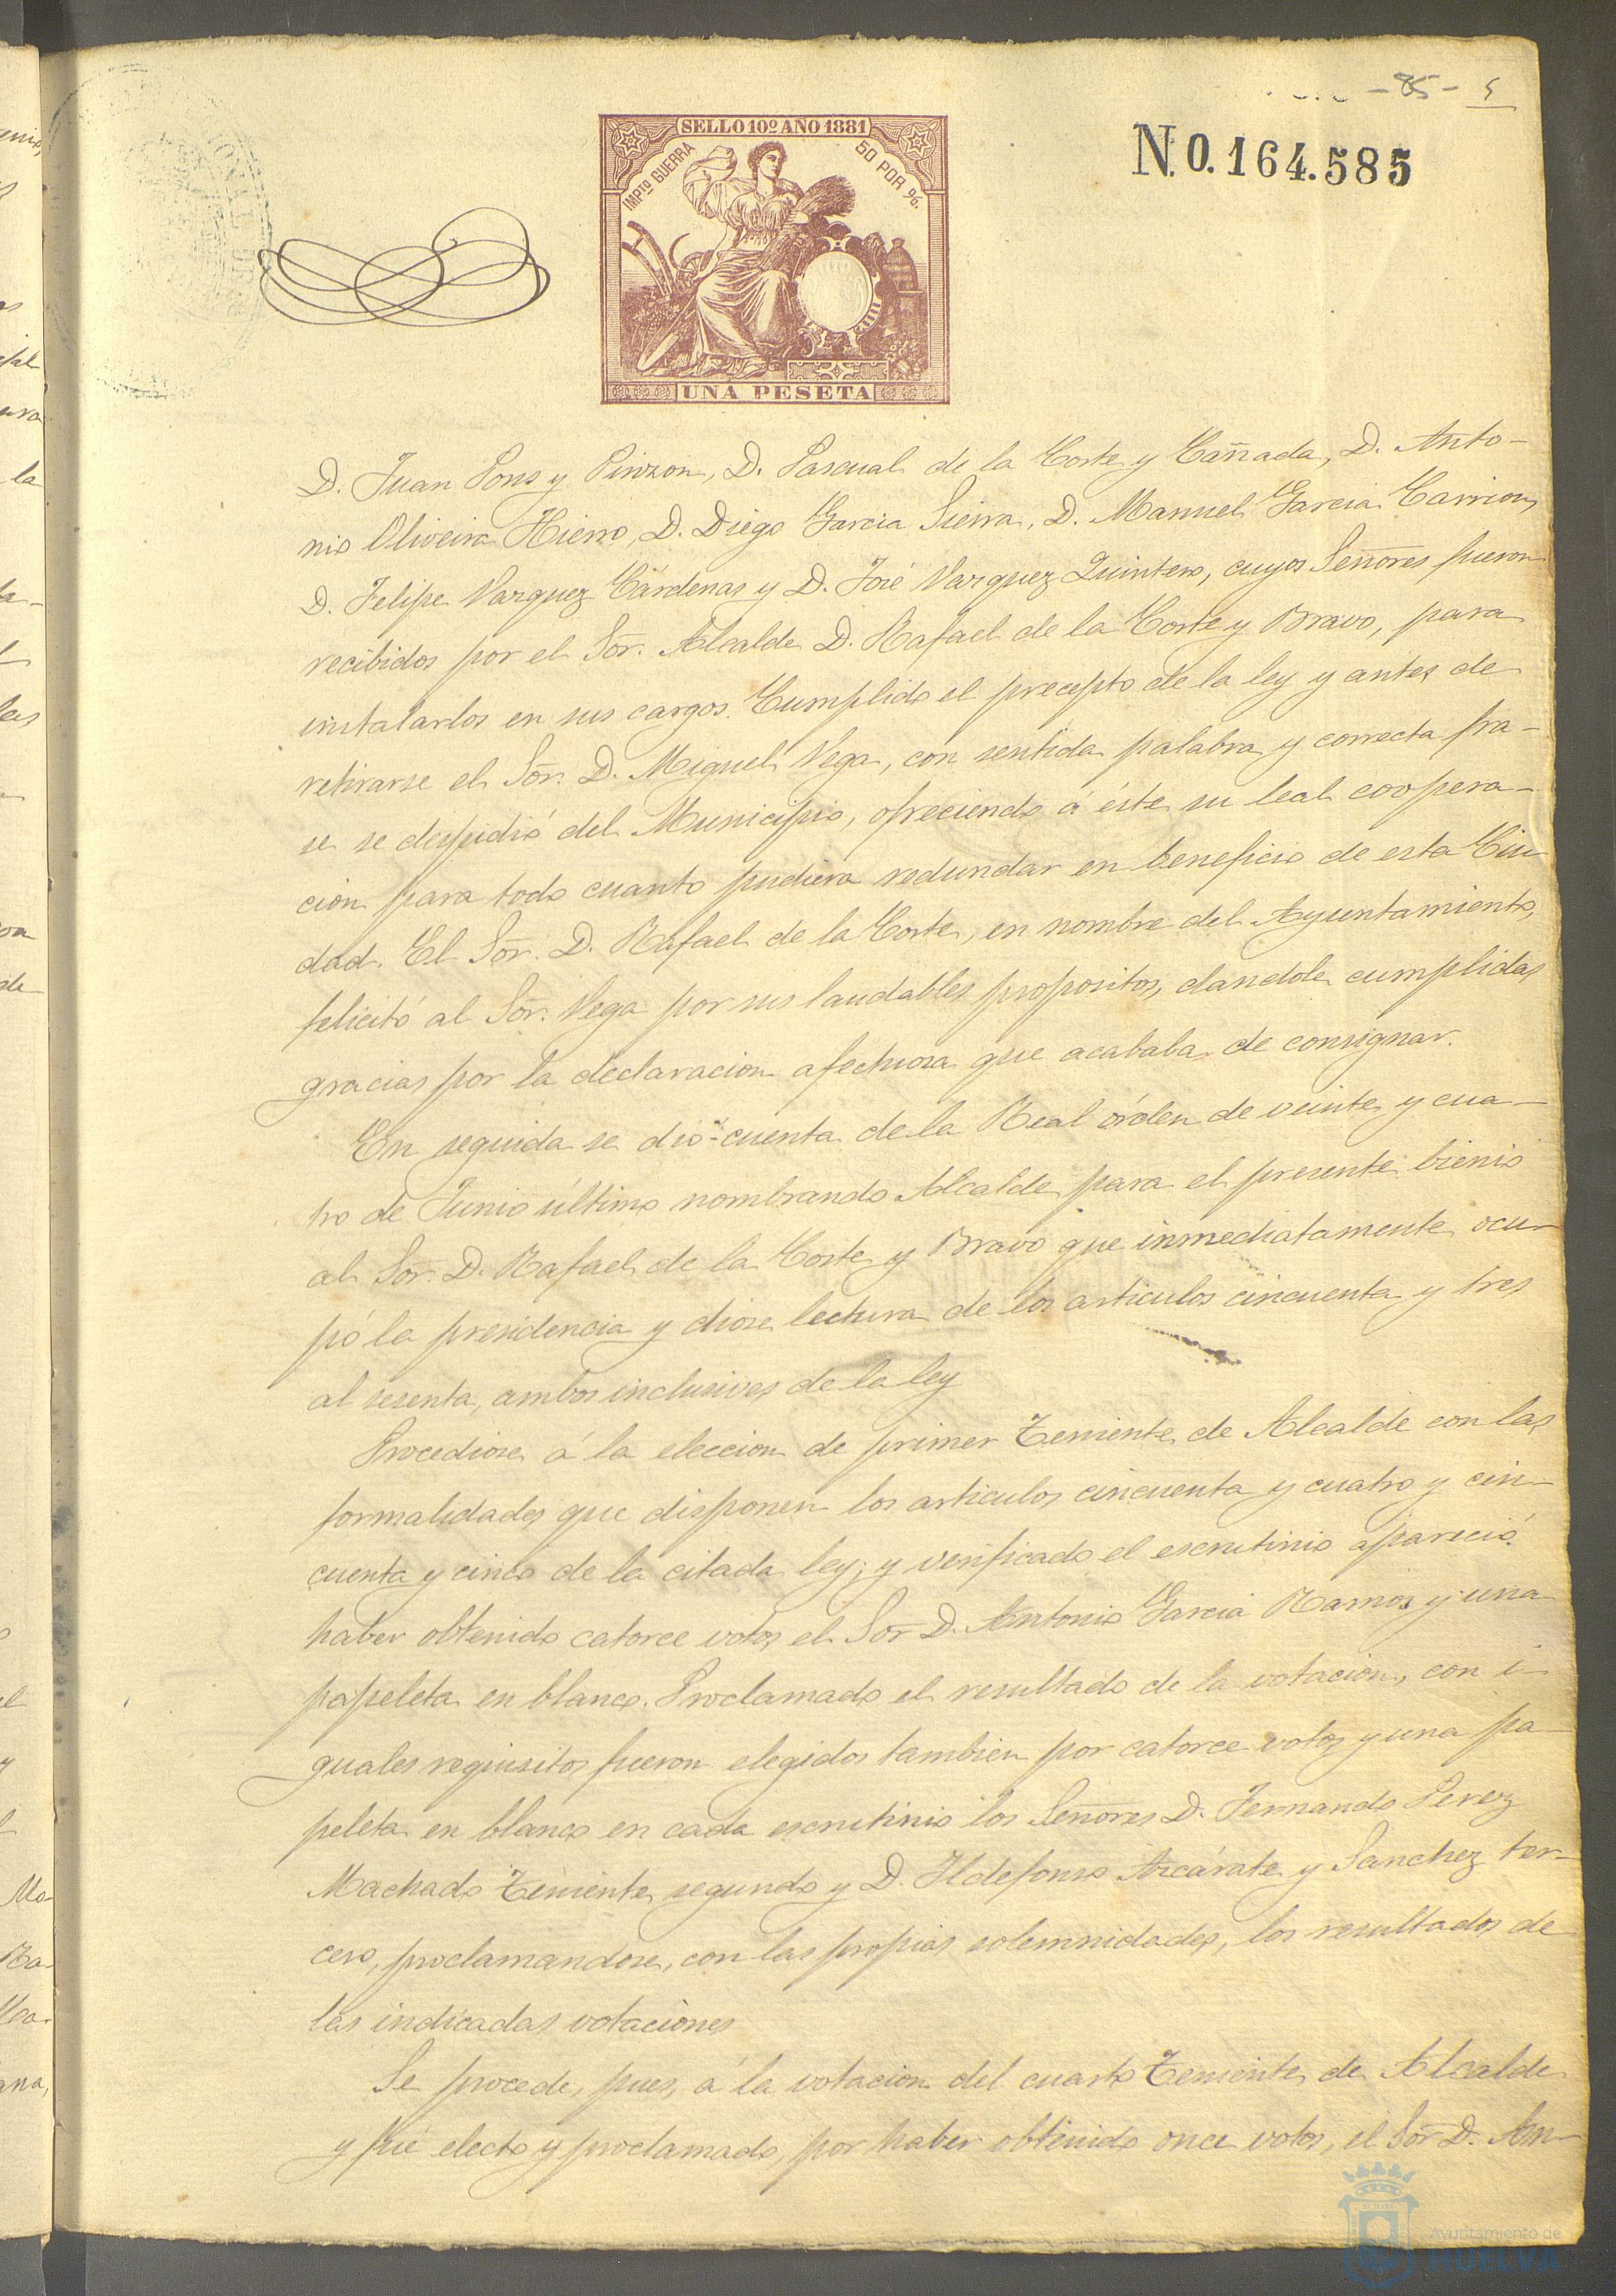 - 85 - 5
SELLO 10º AÑO 1881
IMPTO GUERRA
50 POR %
UNA PESETA
N.0.164.585
D. Juan Pons y Pinzon, D. Pascual de la Corte y Cañada, D. Anto-
nio Oliveira Hierro, D. Diego Garcia Sierra, D. Manuel Garcia Carrion,
D. Felipe Vazquez Cárdenas y D. José Vazquez Quintero, cuyos Señores fueron
recibidos por el Sõr. Alcalde D. Rafael de la Corte y Bravo, para
instalarlos en sus cargos. Cumplido el precepto de la ley y antes de
retirarse el Sõr. D. Miguel Vega, con sentida palabra y correcta fra-
se se despidió del Municipio, ofreciendo á éste su leal coopera-
cion para todo cuanto pudiera redundar en beneficio de esta Ciu
dad. El Sõr. D. Rafael de la Corte, en nombre del Ayuntamiento,
felicitó al Sõr. Vega por sus laudables propositos, dandole cumplidas
gracias por la declaracion afectuosa que acababa de consignar.
En seguida se dió cuenta de la Real órden de veinte y cua-
tro de Junio último nombrando Alcalde para el presente bienio
al Sõr. D. Rafael de la Corte y Bravo que inmediatamente ocu-
pó la presidencia y diose lectura de los articulos cincuenta y tres
al sesenta, ambos inclusives de la ley
Procediose á la eleccion de primer Teniente de Alcalde con las
formalidades que disponen los articulos cincuenta y cuatro y cin-
cuenta y cinco de la citada ley; y verificado el escrutinio apareció
haber obtenido catorce votos el Sõr D. Antonio Garcia Ramos y una
papeleta en blanco. Proclamado el resultado de la votacion, con i-
guales requisitos fueron elegidos tambien por catorce votos y una pa-
peleta en blanco en cada escrutinio los Señores D. Fernando Perez
Machado Teniente segundo y D. Ildefonso Azcárate y Sanchez ter-
cero, proclamandose, con las propias solemnidades, los resultados de
las indicadas votaciones
Se procede, pues, á la votacion del cuarto Teniente de Alcalde
y fué electo y proclamado, por haber obtenido once votos, el Sõr D. An-
Ayuntamiento de
HUELVA